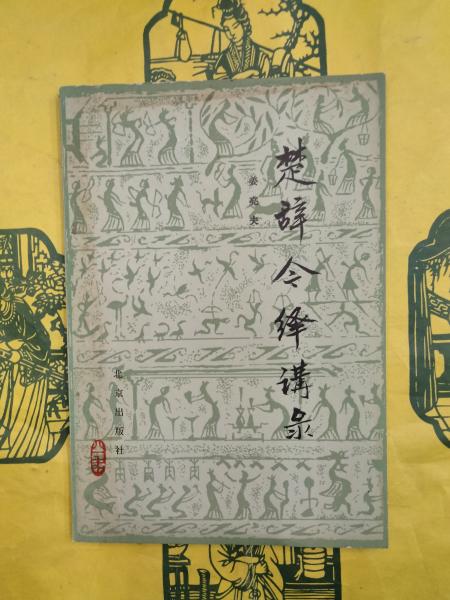 楚辞今绎講录
姜亮夫
北京出版社